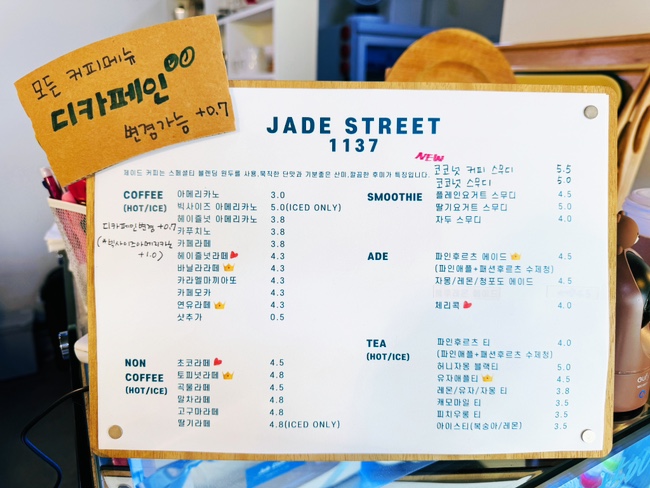 모든 커피메뉴
디카페인
변경가능 +0.7
JADE STREET
1137
제이드 커피는 스페셜티 블렌딩 원두를 사용,묵직한 단맛과 기분좋은 산미,깔끔한 후미가 특징입니다.
COFFEE
(HOT/ICE)
디카페인변경 +0.7
(*빅사이즈아메리카노
+1.0)
아메리카노 3.0
빅사이즈 아메리카노 5.0(ICED ONLY)
헤이즐넛 아메리카노 3.8
카푸치노 3.8
카페라떼 3.8
헤이즐넛라떼 4.3
바닐라라떼 4.3
카라멜마끼아또 4.3
카페모카 4.3
연유라떼 4.3
샷추가 0.5
NON
COFFEE
(HOT/ICE)
초코라떼 4.5
토피넛라떼 4.8
곡물라떼 4.5
말차라떼 4.8
고구마라떼 4.8
딸기라떼 4.8(ICED ONLY)
NEW
코코넛 커피 스무디 5.5
코코넛 스무디 5.0
SMOOTHIE
플레인요거트 스무디 4.5
딸기요거트 스무디 5.0
자두 스무디 4.0
ADE
파인후르츠 에이드 4.5
(파인애플+패션후르츠 수제청)
자몽/레몬/청포도 에이드 4.5
체리콕 4.0
TEA
(HOT/ICE)
파인후르츠 티 4.0
(파인애플+패션후르츠 수제청)
허니자몽 블랙티 5.0
유자애플티 4.5
레몬/유자/자몽 티 3.8
캐모마일 티 3.5
피치우롱 티 3.5
아이스티(복숭아/레몬) 3.5